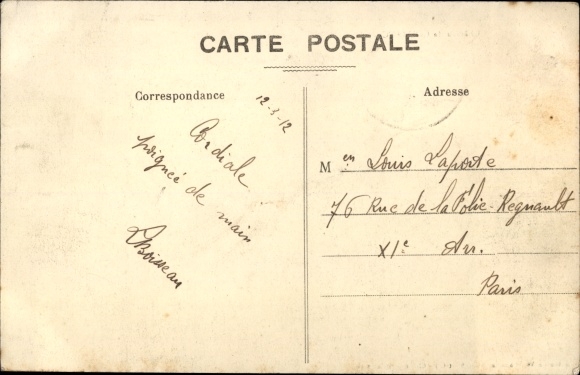 CARTE POSTALE
Correspondance
Adresse
12-3-12
Cordiale
poignée de main
Boisseau
M en Louis Laporte
76 Rue de la Folie-Regnault
XIe Arr.
Paris